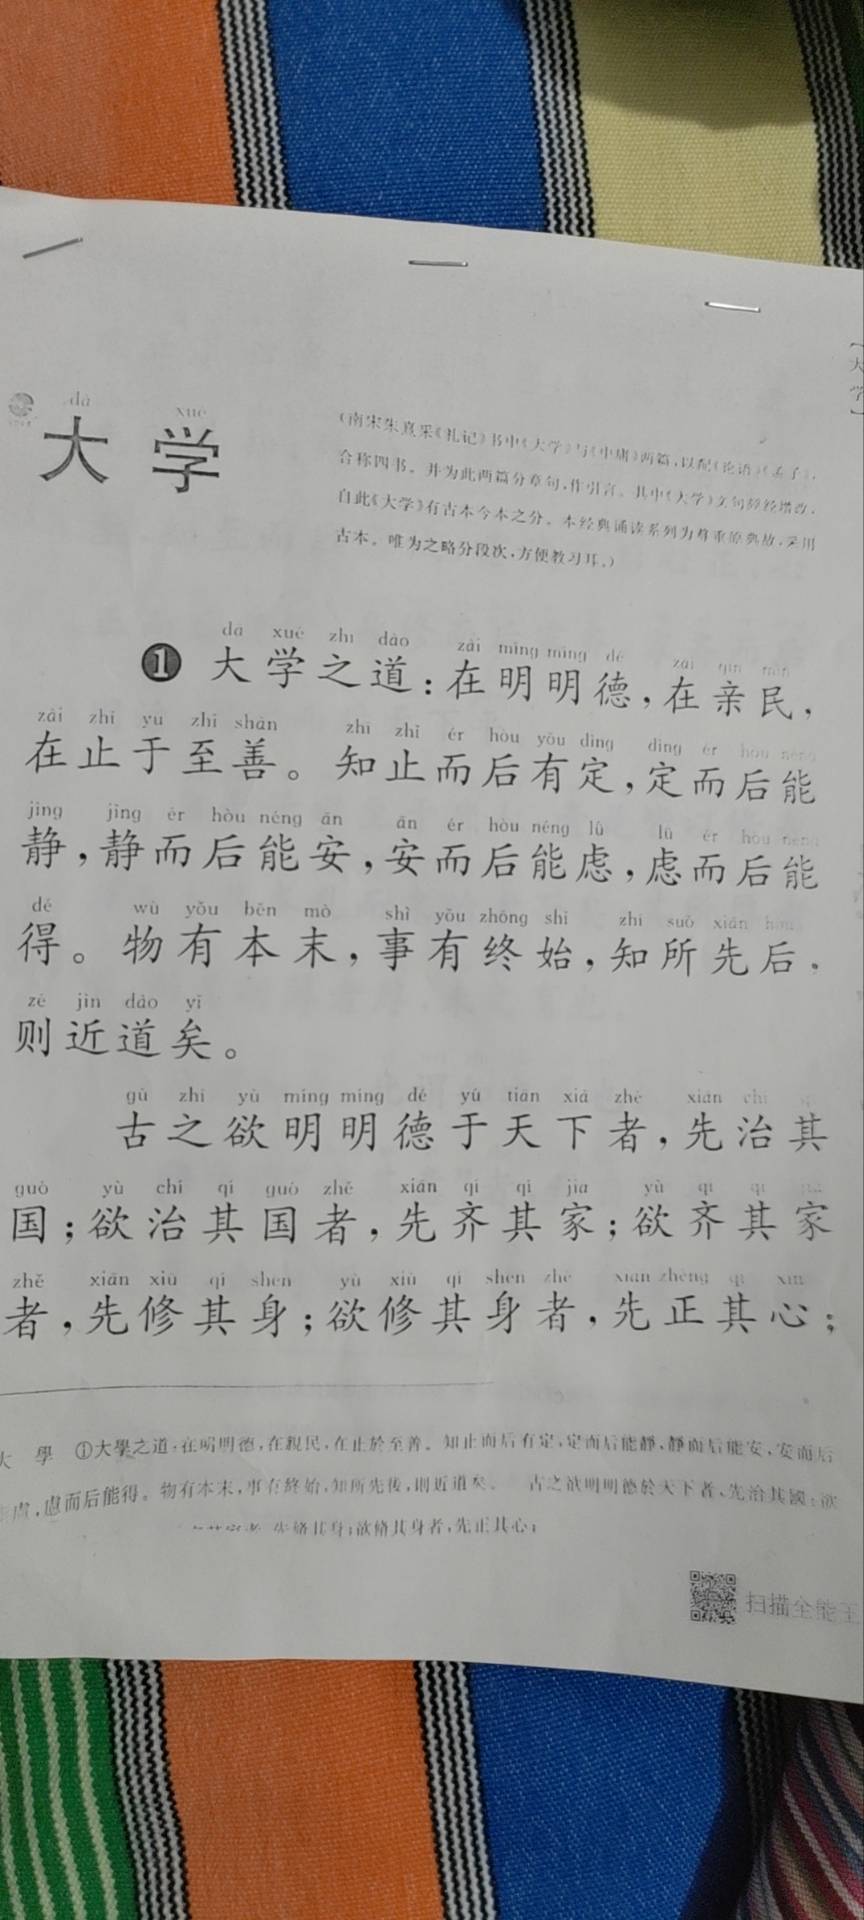 大学
dà xué
大学
(南宋朱熹采《礼记》书中《大学》与《中庸》两篇,以配《论语》《孟子》,
合称四书。并为此两篇分章句,作引言。其中《大学》文句辞经增改,
自此《大学》有古本今本之分。本经典诵读系列为尊重原典故,采用
古本。唯为之略分段次,方便教习耳。)
dà xué zhī dào zài míng míng dé zài qīn mín
❶ 大学之道:在明明德,在亲民,
zài zhǐ yú zhì shàn zhī zhǐ ér hòu yǒu dìng dìng ér hòu néng
在止于至善。知止而后有定,定而后能
jìng jìng ér hòu néng ān ān ér hòu néng lǜ lǜ ér hòu néng
静,静而后能安,安而后能虑,虑而后能
dé wù yǒu běn mò shì yǒu zhōng shǐ zhī suǒ xiān hòu
得。物有本末,事有终始,知所先后,
zé jìn dào yǐ
则近道矣。
gǔ zhī yù míng míng dé yú tiān xià zhě xiān chí
古之欲明明德于天下者,先治其
guó yù chí qí guó zhě xiān qí qí jiā yù qí qí jiā
国;欲治其国者,先齐其家;欲齐其家
zhě xiān xiū qí shēn yù xiū qí shēn zhě xiān zhèng qí xīn
者,先修其身;欲修其身者,先正其心;
大 學 ①大學之道:在明明德,在親民,在止於至善。知止而后有定,定而后能靜,靜而后能安,安而后
慮,慮而后能得。物有本末,事有終始,知所先後,則近道矣。 古之欲明明德於天下者,先治其國;欲
先脩其身;欲脩其身者,先正其心;
扫描全能王